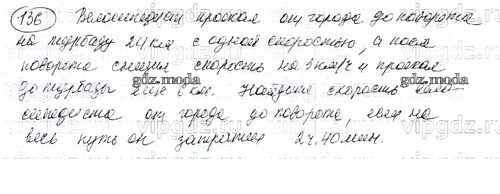 136 Велосипедист проехал от города до поворота
на турбазу 24 км с одной скоростью, а после
поворота снизил скорость на 3 км/ч и проехал
до турбазы еще 6 км. Найдите скорость вело-
сипедиста от города до поворота, если на
весь путь он затратил 2ч. 40 мин.
gdz.moda
gdz.moda
gdz.moda